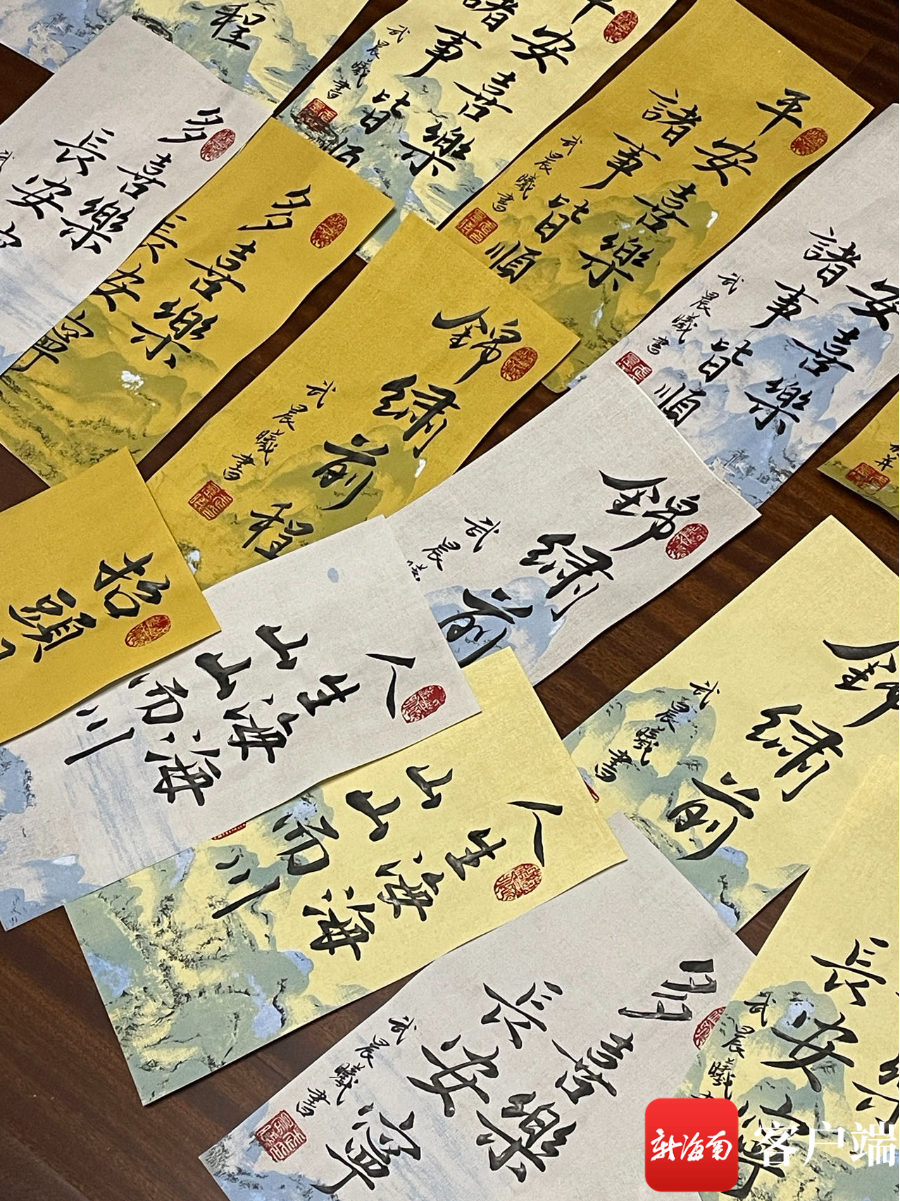 程
平安喜樂
諸事皆順
武晨曦書
平安喜樂
諸事皆順
武晨曦書
多喜樂
長安
武
多喜樂
長安寧
安喜樂
諸事皆順
武晨曦書
錦綉前程
武晨曦書
錦綉前
武晨
抬頭
人生海海
山山而川
錦綉前
武晨曦書
人生海海
山山而川
多喜樂
長安寧
武晨曦書
長安寧
武晨曦書
新海南 客户端